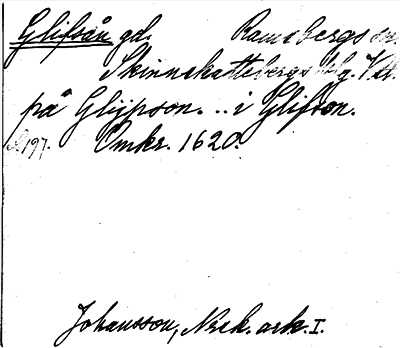 Glifsån gd. Ramsbergs sn.
Skinnskattebergs bslg. Vstl.
på Glijpson. .. i Glifson.
S. 197. Omkr. 1620.
Johansson, Norak. ark. I.